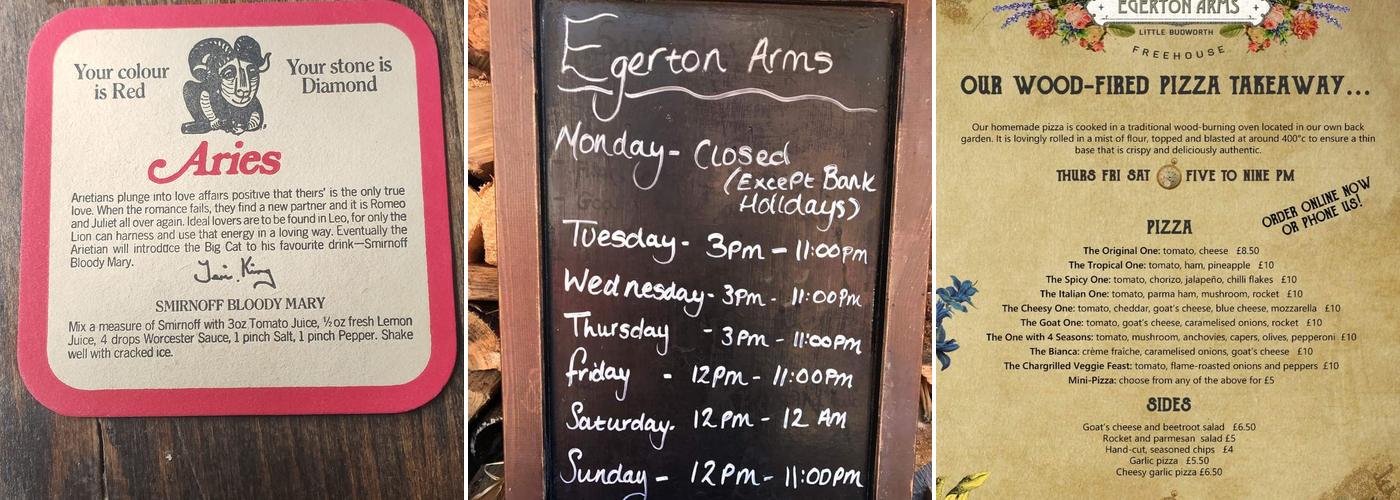 Your colour
is Red
Your stone is
Diamond
Aries
Arietians plunge into love affairs positive that theirs' is the only true
love. When the romance fails, they find a new partner and it is Romeo
and Juliet all over again. Ideal lovers are to be found in Leo, for only the
Lion can harness and use that energy in a loving way. Eventually the
Arietian will introddce the Big Cat to his favourite drink—Smirnoff
Bloody Mary.
SMIRNOFF BLOODY MARY
Mix a measure of Smirnoff with 3oz Tomato Juice, ½oz fresh Lemon
Juice, 4 drops Worcester Sauce, 1 pinch Salt, 1 pinch Pepper. Shake
well with cracked ice.
Egerton Arms
Monday - Closed
(Except Bank
Holidays)
Tuesday - 3pm - 11:00pm
Wednesday - 3pm - 11:00pm
Thursday - 3pm - 11:00pm
friday - 12pm - 11:00pm
Saturday. 12pm - 12 AM
Sunday - 12pm - 11:00pm
EGERTON ARMS
LITTLE BUDWORTH
FREEHOUSE
OUR WOOD-FIRED PIZZA TAKEAWAY...
Our homemade pizza is cooked in a traditional wood-burning oven located in our own back
garden. It is lovingly rolled in a mist of flour, topped and blasted at around 400°c to ensure a thin
base that is crispy and deliciously authentic.
THURS FRI SAT FIVE TO NINE PM
ORDER ONLINE NOW
OR PHONE US!
PIZZA
The Original One: tomato, cheese £8.50
The Tropical One: tomato, ham, pineapple £10
The Spicy One: tomato, chorizo, jalapeño, chilli flakes £10
The Italian One: tomato, parma ham, mushroom, rocket £10
The Cheesy One: tomato, cheddar, goat's cheese, blue cheese, mozzarella £10
The Goat One: tomato, goat's cheese, caramelised onions, rocket £10
The One with 4 Seasons: tomato, mushroom, anchovies, capers, olives, pepperoni £10
The Bianca: crème fraîche, caramelised onions, goat's cheese £10
The Chargrilled Veggie Feast: tomato, flame-roasted onions and peppers £10
Mini-Pizza: choose from any of the above for £5
SIDES
Goat's cheese and beetroot salad £6.50
Rocket and parmesan salad £5
Hand-cut, seasoned chips £4
Garlic pizza £5.50
Cheesy garlic pizza £6.50